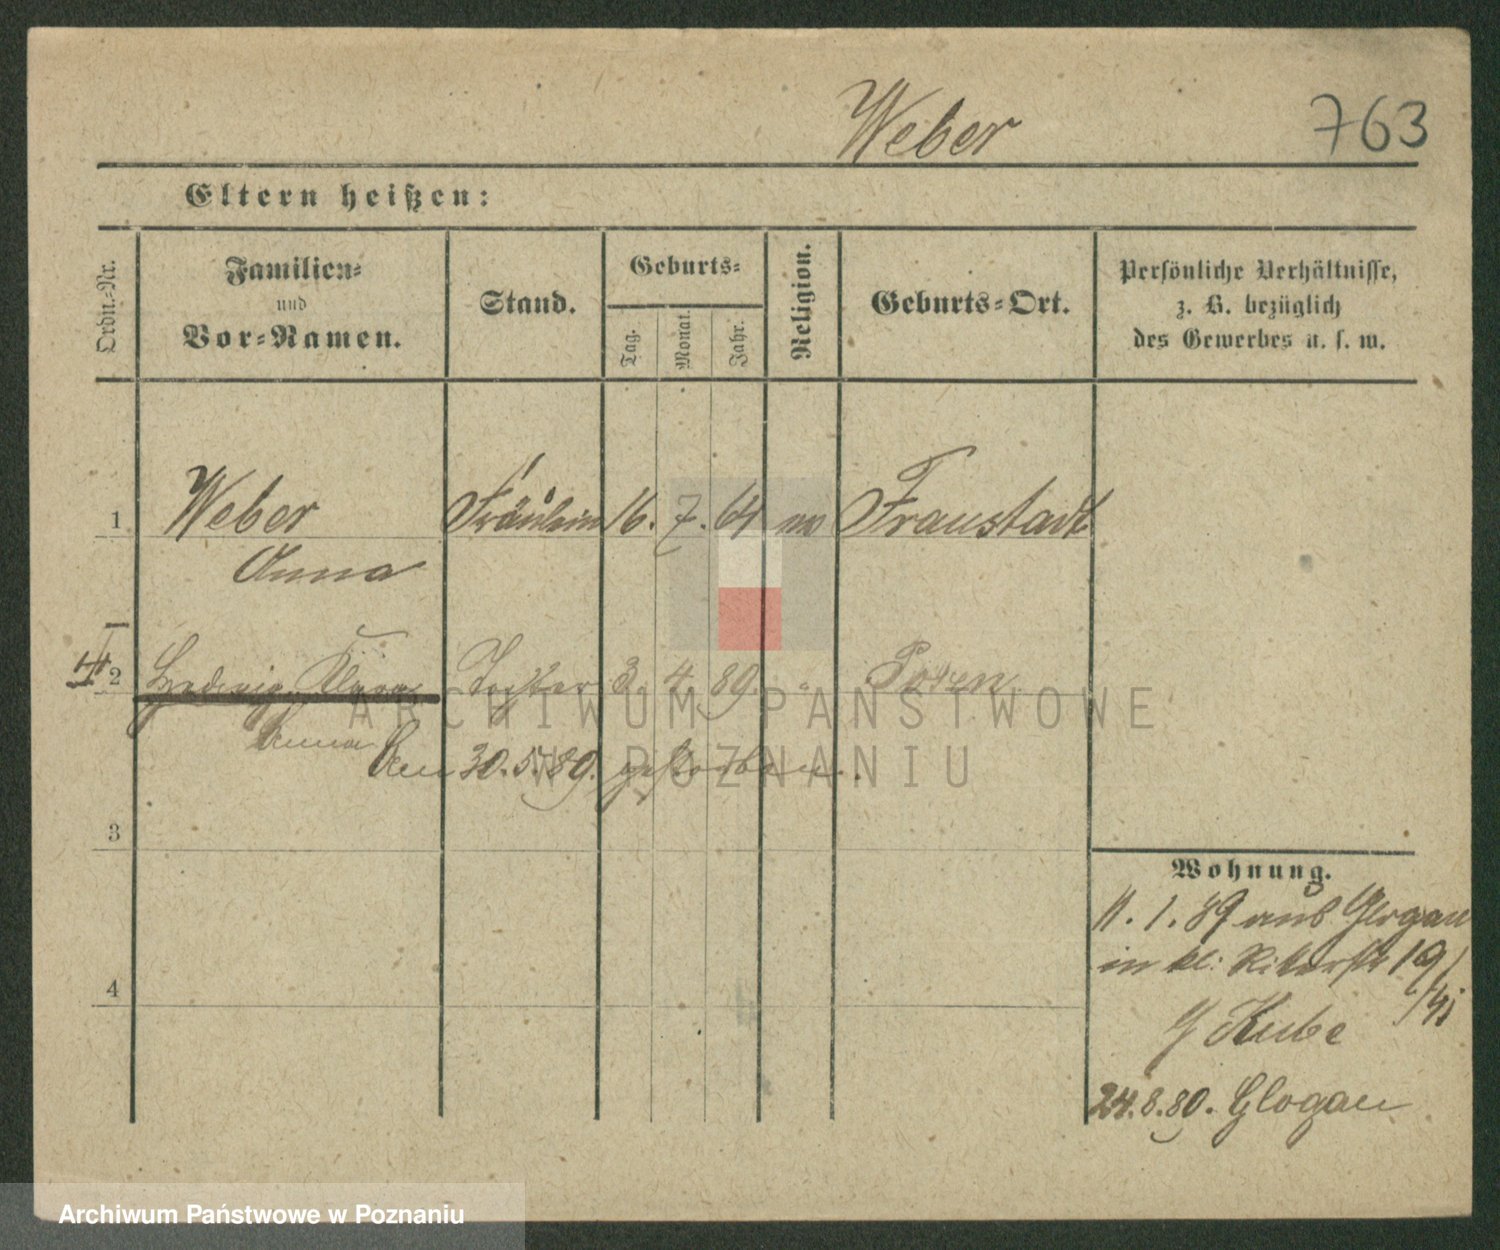 Weber 763
Eltern heißen:
Ordn.-Nr.
Familien-
und
Vor-Namen.
Stand.
Geburts-
Tag.
Monat.
Jahr.
Religion.
Geburts-Ort.
Persönliche Verhältnisse,
z. B. bezüglich
des Gewerbes u. s. w.
1 Weber Fräulein 16. 7. 64 Fraustadt
Anna
2 Hedwig Clara Tochter 3. 4. 89. " Posen
Anna
Am 30.5.89. gestorben.
3
Wohnung.
11. 1. 89 aus Glogau
in kl: Ritterstr 19/
4
Kube
24.8.89. Glogau
ARCHIWUM PAŃSTWOWE
W POZNANIU
Archiwum Państwowe w Poznaniu